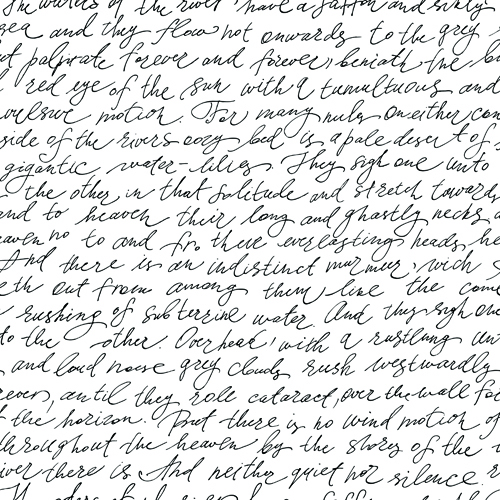 The waters of the river have a saffron and sickly
sea and they flow not onwards to the grey
but palpitate forever and forever, beneath the
red eye of the sun with a tumultuous and
convulsive motion. For many miles on either
side of the rivers oozy bed is a pale desert of
gigantic water-lilies. They sigh one unto
the other in that solitude and stretch towards
and to heaven their long and ghastly necks
heaven no to and fro there everlasting heads, he
And there is an indistinct murmur, wich
eth out from among them like the
rushing of subterrine water. And they sigh one
to the other. Overhead, with a rustling
and loud noise grey clouds rush westwardly
until they role cataract, over the wall
the horizon. But there is no wind motion of
throughout the heaven by the shores of the
river there is And neither quiet nor silence